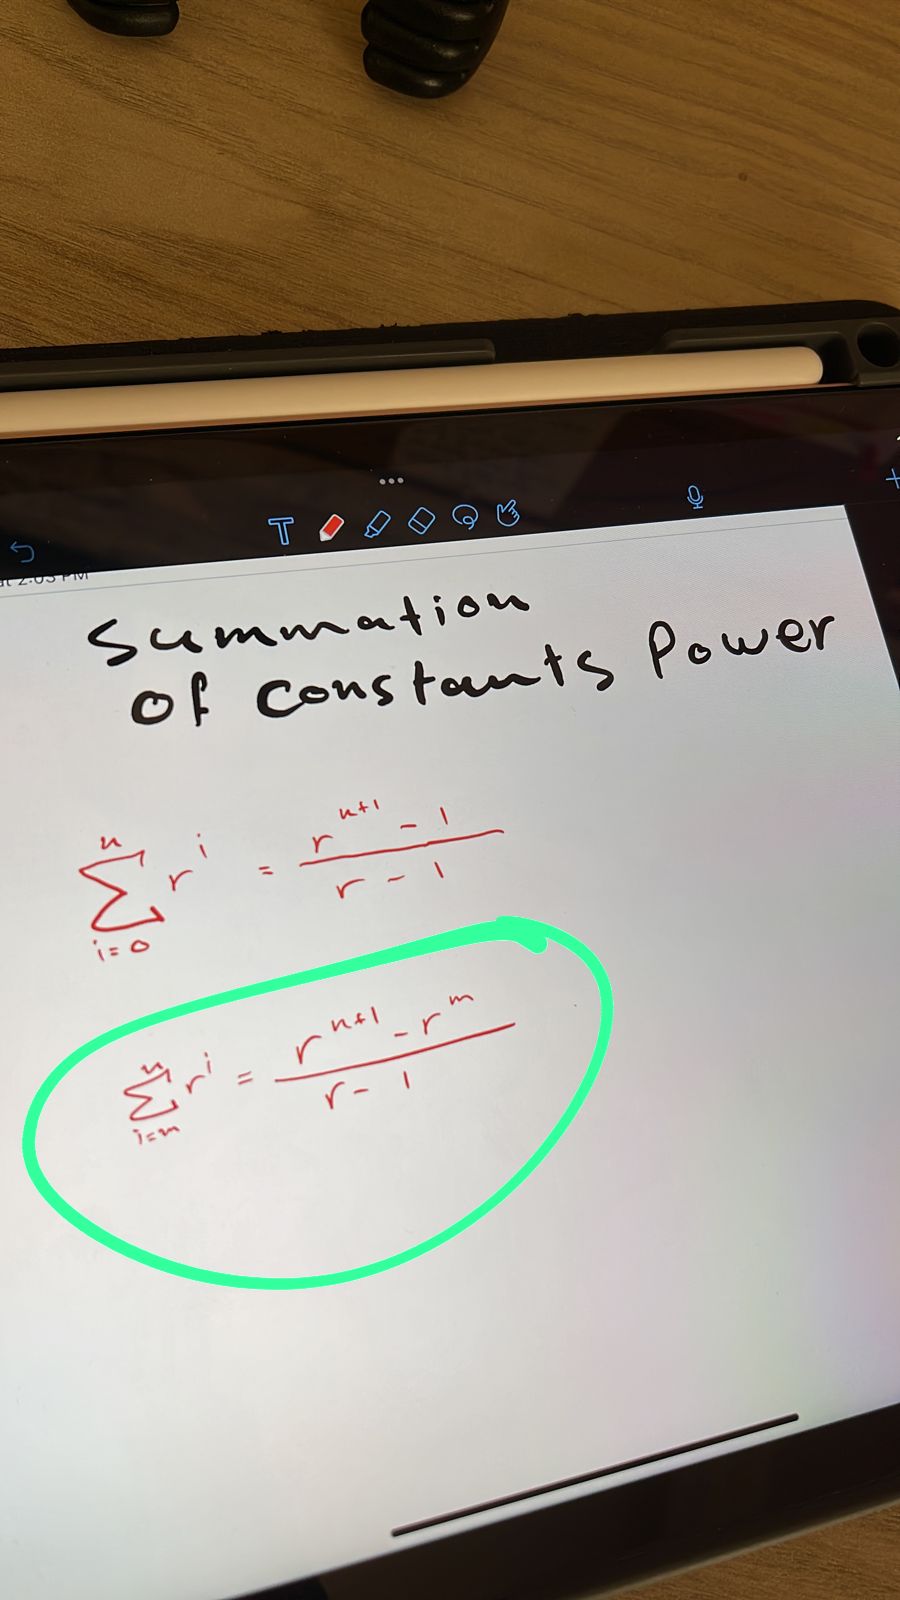 at 2:03 PM
Summation
of constants Power
n
∑ rⁱ = (rⁿ⁺¹ - 1) / (r - 1)
i=0
n
∑ rⁱ = (rⁿ⁺¹ - rᵐ) / (r - 1)
i=m